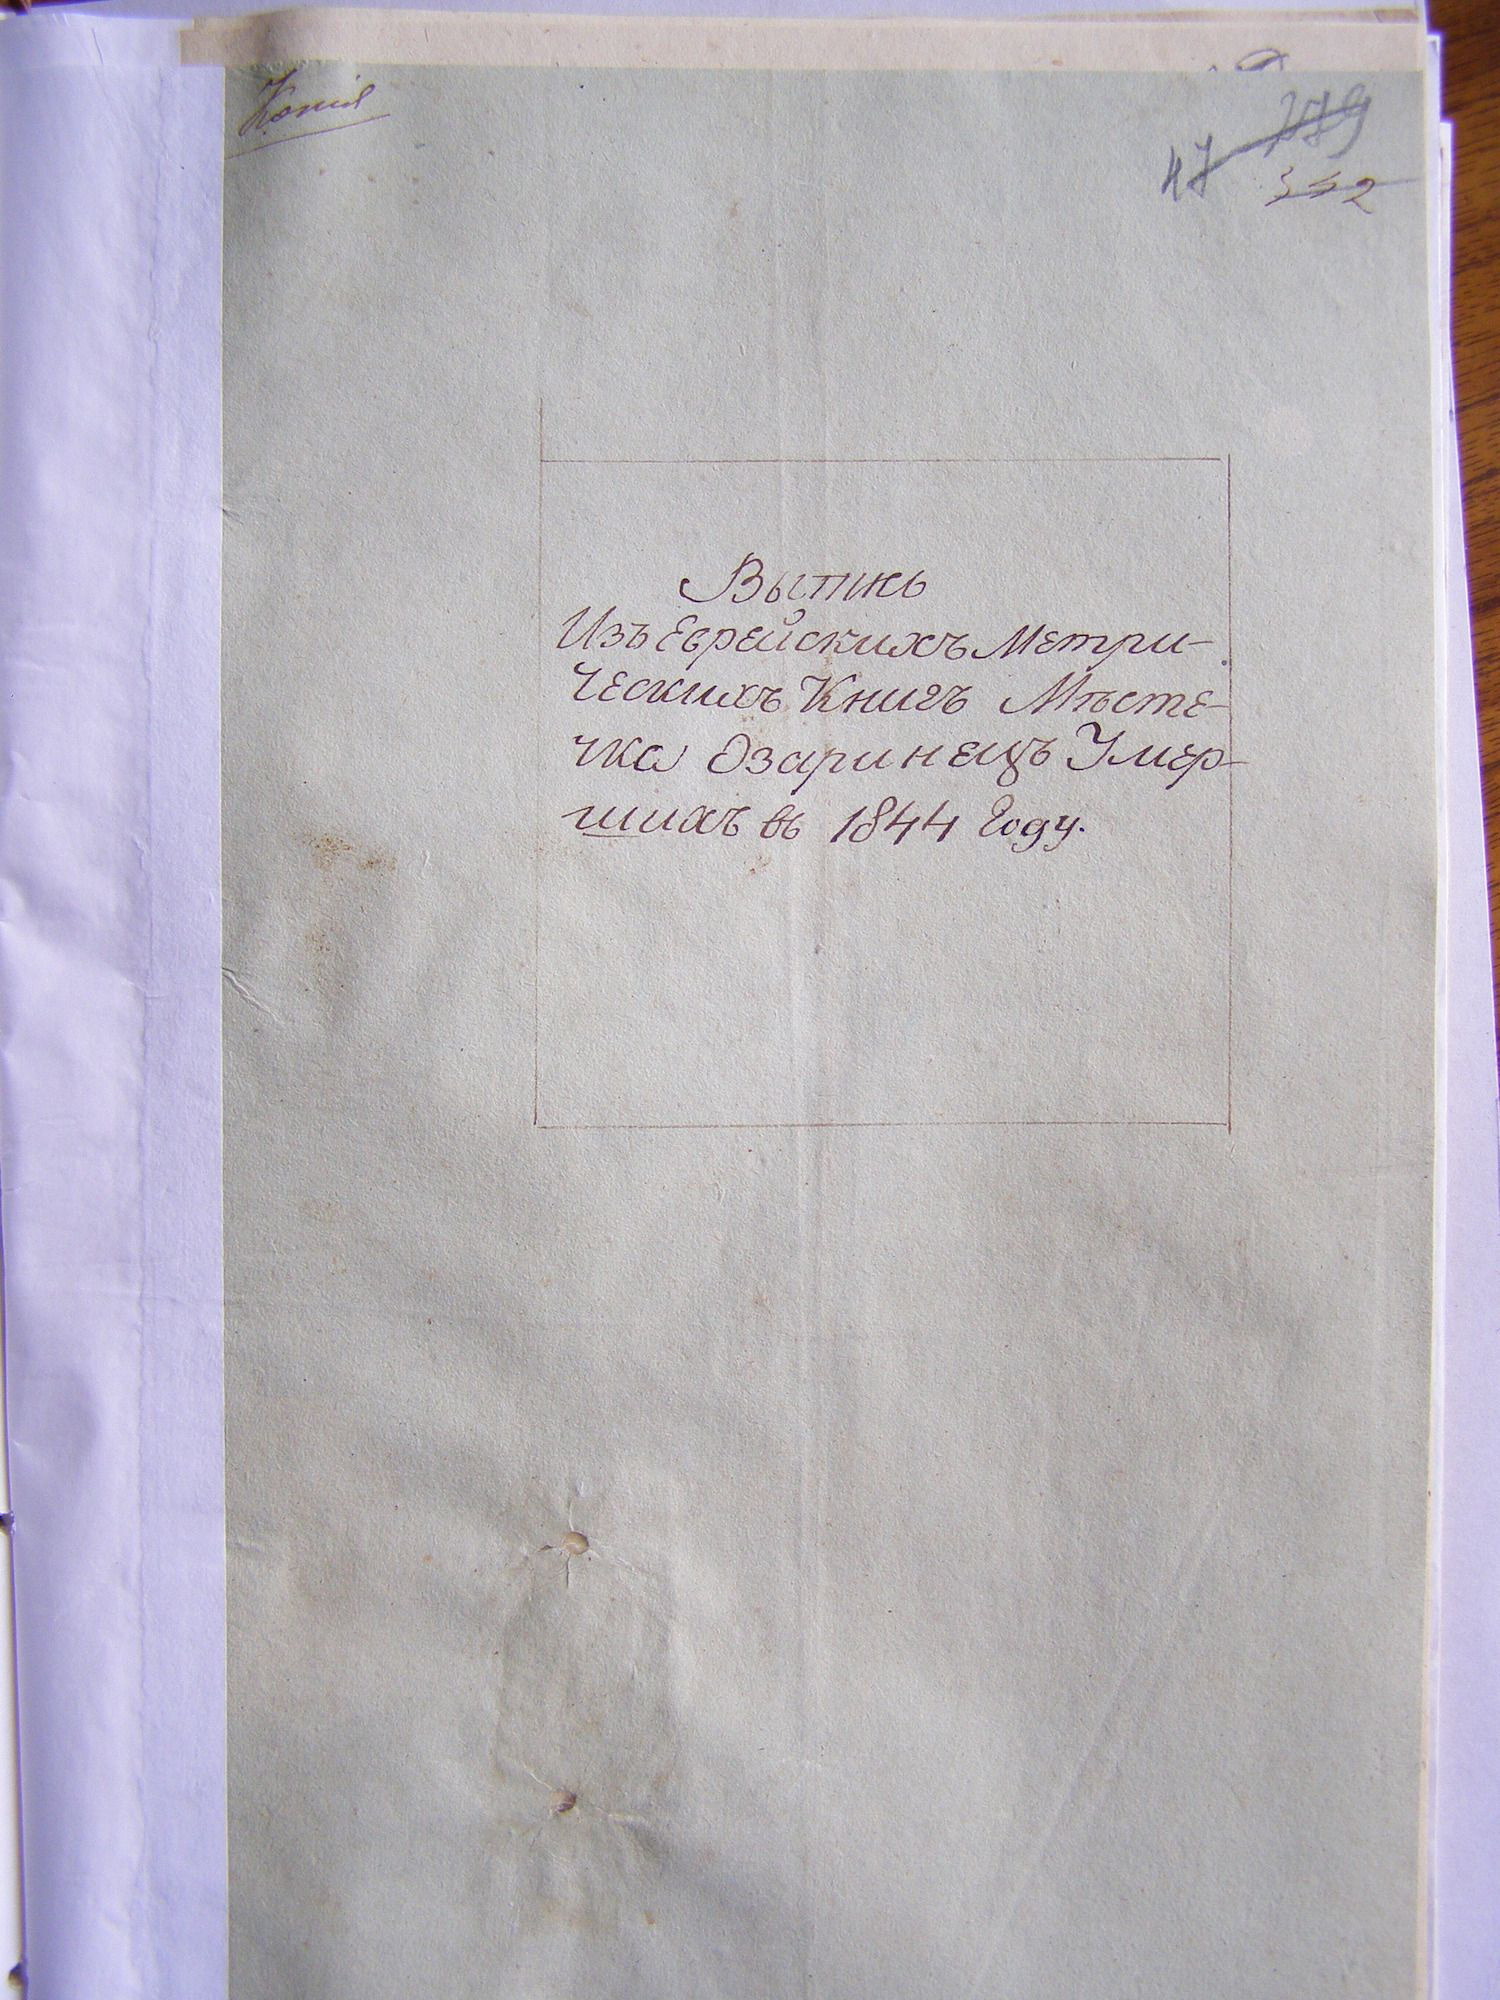 Копія
279
47 352
Вытисъ
Изъ Еврейскихъ Метри-
ческихъ Книгъ Мѣсте-
чка Озаринецъ Умер-
шихъ въ 1844 Году.